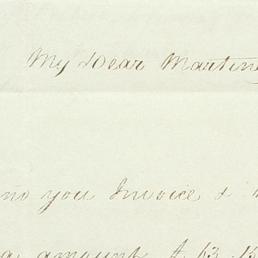 My Dear Martine
you Invoice &
amount $ 63.15